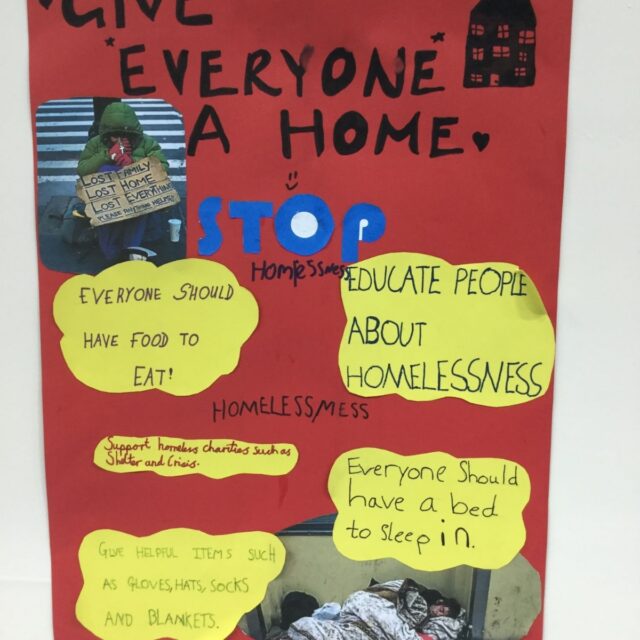 GIVE
"EVERYONE"
A HOME.
LOST FAMILY
LOST HOME
LOST EVERYTHING
PLEASE ANYTHING HELPS!
STOP
Homlessness
EVERYONE SHOULD
HAVE FOOD TO
EAT!
EDUCATE PEOPLE
ABOUT
HOMELESSNESS
HOMELESSMESS
Support homeless charities such as
Shelter and Crisis.
Everyone Should
have a bed
to sleep in.
GIVE HELPFUL ITEMS SUCH
AS GLOVES, HATS, SOCKS
AND BLANKETS.